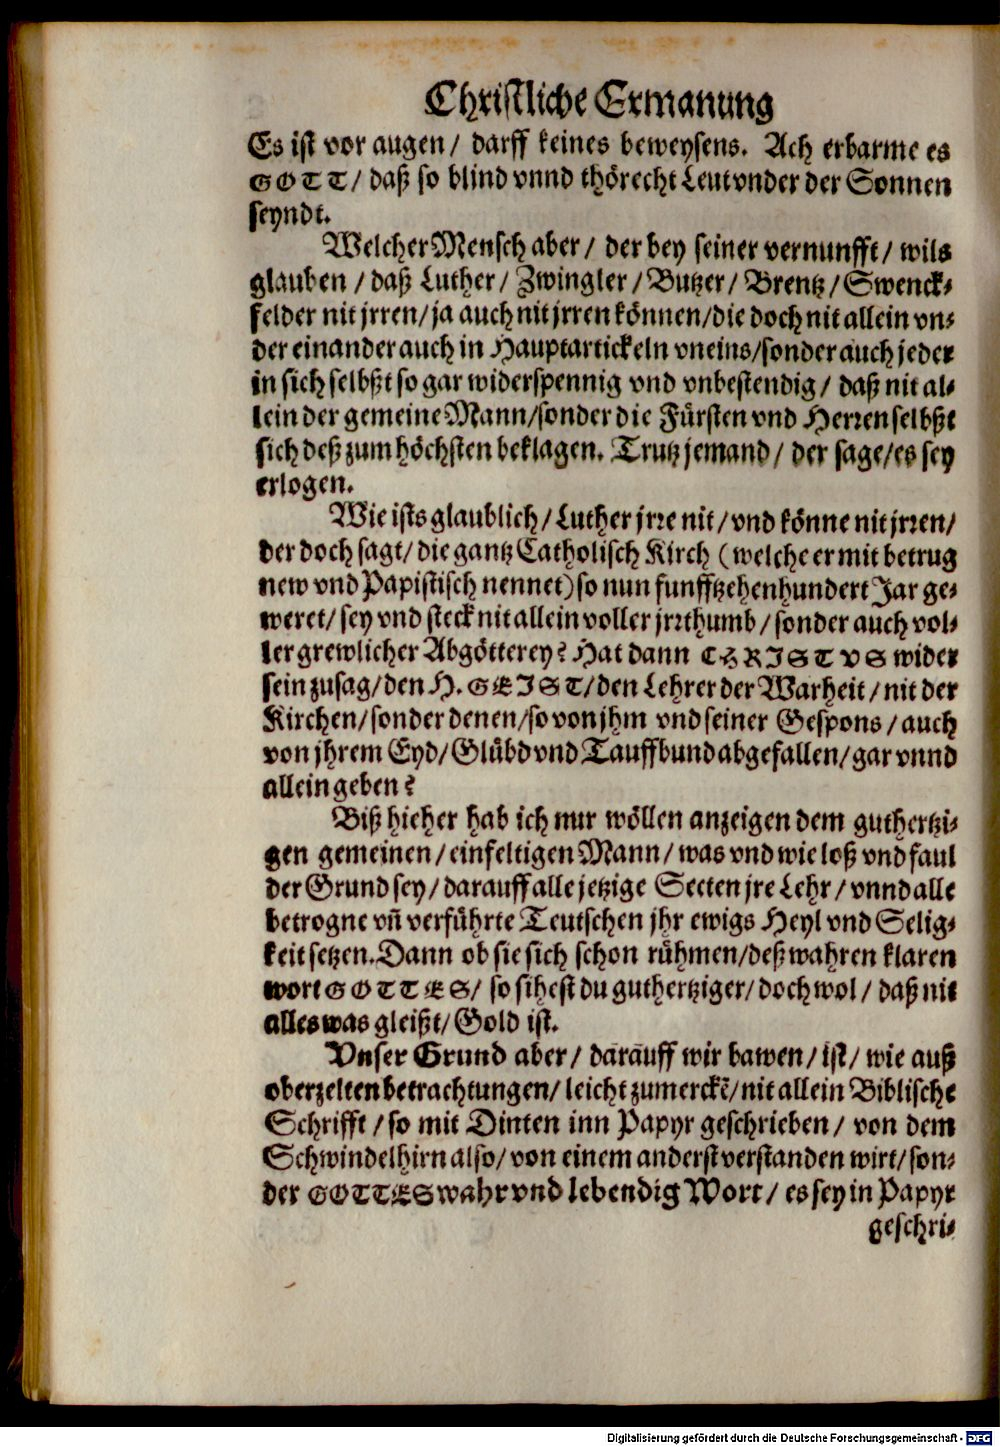 Christliche Ermanung
Es ist vor augen/ darff keines beweysens. Ach erbarme es
GOTT/ daß so blind vnnd thörecht Leut vnder der Sonnen
seyndt.
Welcher Mensch aber/ der bey seiner vernunfft/ wils
glauben/ daß Luther/ Zwingler/ Butzer/ Brentz/ Swenck⸗
felder nit jrren/ ja auch nit jrren können/ die doch nit allein vn⸗
der einander auch in Hauptartickeln vneins/ sonder auch jeder
in sich selbßt so gar widerspennig vnd vnbestendig/ daß nit al⸗
lein der gemeine Mann/ sonder die Fürsten vnd Herren selbßt
sich deß zum höchsten beklagen. Trutz jemand/ der sage/ es sey
erlogen.
Wie ists glaublich/ Luther jrre nit/ vnd könne nit jrren/
der doch sagt/ die gantz Catholisch Kirch (welche er mit betrug
new vnd Papistisch nennet) so nun funfftzehenhundert Jar ge⸗
weret/ sey vnd steck nit allein voller jrrthumb/ sonder auch vol⸗
ler grewlicher Abgötterey? Hat dann CHRISTVS wider
sein zusag/ den H. GEIST/ den Lehrer der Warheit/ nit der
Kirchen/ sonder denen/ so von jhm vnd seiner Gespons/ auch
von jhrem Eyd/ Glübd vnd Tauffbund abgefallen/ gar vnnd
allein geben?
Biß hieher hab ich nur wöllen anzeigen dem guthertzi⸗
gen gemeinen/ einfeltigen Mann/ was vnd wie loß vnd faul
der Grund sey/ darauff alle jetzige Secten jre Lehr/ vnnd alle
betrogne vñ verführte Teutschen jhr ewigs Heyl vnd Selig⸗
keit setzen. Dann ob sie sich schon rühmen/ deß wahren klaren
wort GOTTES/ so sihest du guthertziger/ doch wol/ daß nit
alles was gleißt/ Gold ist.
Vnser Grund aber/ darauff wir bawen/ ist/ wie auß
oberzelten betrachtungen/ leicht zumerckẽ/ nit allein Biblische
Schrifft/ so mit Dinten inn Papyr geschrieben/ von dem
Schwindelhirn also/ von einem anderst verstanden wirt/ son⸗
der GOTTES wahr vnd lebendig Wort/ es sey in Papyr
geschri⸗
Digitalisierung gefördert durch die Deutsche Forschungsgemeinschaft - DFG